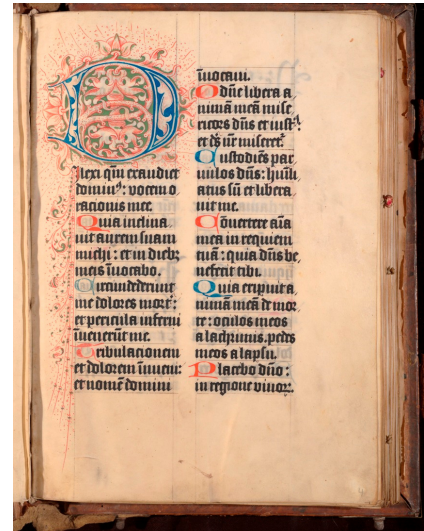 D
ilexi qm̄ exaudiet
dominꝰ: vocem o
racionis mee.
Quia inclina
uit aurem suam
michi: et in diebꝫ
meis inuocabo.
Circumdederunt
me dolores mort̉:
et pericula inferni
inuenerūt me.
Tribulacionem
et dolorem inueni:
et nomē domini
inuocaui.
O dn̄e libera a
nimā meā mise
ricors dn̄s et iust᷒:
et dс̄ nr̄ miseret᷑.
Custodiēs par
uulos dn̄s: humili
atus sū et libera
uit me.
Cōuertere aīa
mea in requiem
tuā: quia dn̄s be
nefecit tibi.
Quia eripuit a
nimā meā de mor
te: oculos meos
a lacrimis. pedes
meos a lapsu.
Placebo dn̄o:
in regione viuoꝝ.